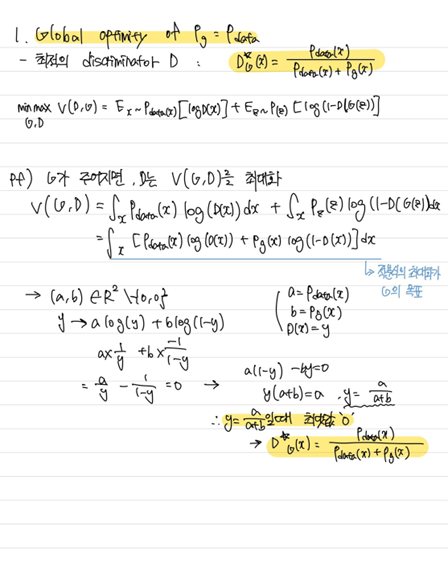 1. Global optimity of Pg = Pdata
- 최적의 discriminator D : D*G(x) = Pdata(x) / (Pdata(x) + Pg(x))
min max V(D,G) = Ex~Pdata(x)[logD(x)] + Ez~P(z) [log(1-D(G(z))]
G,D
pf) G가 주어지면, D는 V(G,D)를 최대화
V(G,D) = ∫x Pdata(x) log(D(x))dx + ∫x Pz(z) log(1-D(G(z))dz
= ∫x [Pdata(x) log(D(x)) + Pg(x) log(1-D(x))]dx
↳ 의 최대화가
G의 목표
→ (a,b) ∈ R² \{0,0}
a = Pdata(x)
b = Pg(x)
D(x) = y
y → a log(y) + b log(1-y)
a × 1/y + b × -1/(1-y)
= a/y - 1/(1-y) = 0 →
a(1-y) - by = 0
y(a+b) = a, y = a/(a+b)
∴ y = a/(a+b)일때 최댓값 '0'
→ D*G(x) = Pdata(x) / (Pdata(x) + Pg(x))